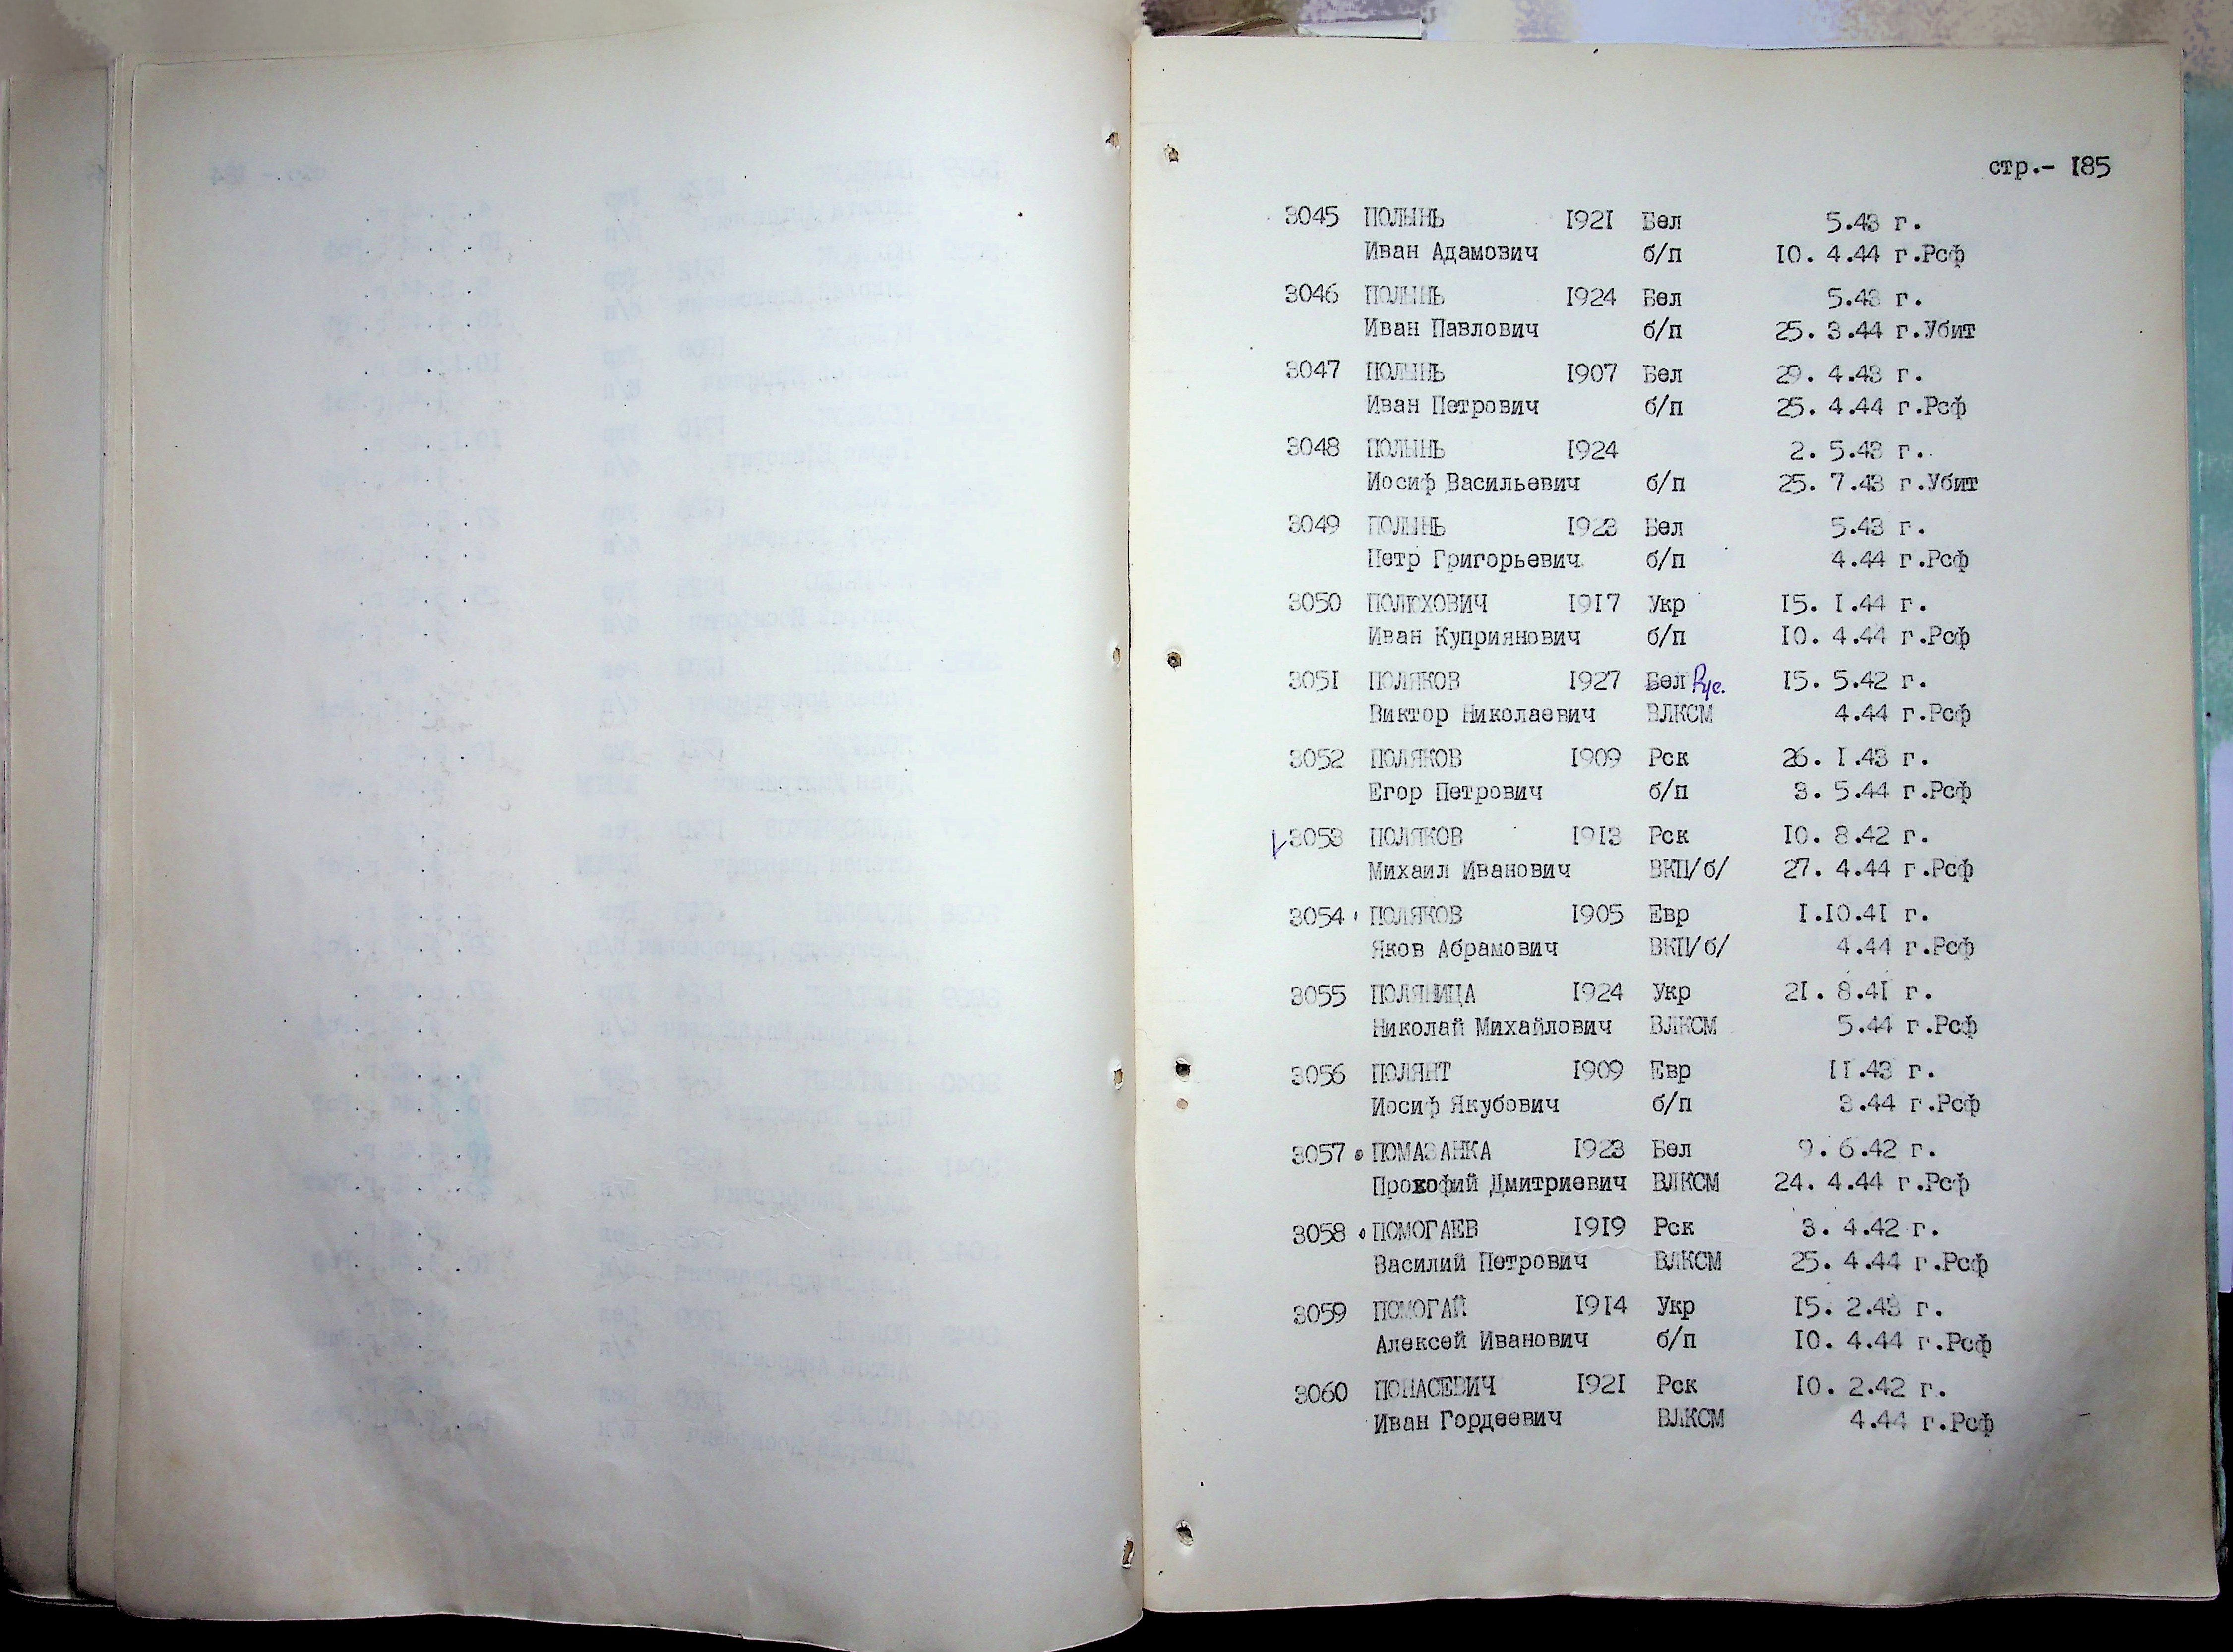 стр.- 185
3045 ПОЛЫНЬ 1921 Бел 5.43 г.
Иван Адамович б/п 10. 4.44 г.Рсф
3046 ПОЛЫНЬ 1924 Бел 5.43 г.
Иван Павлович б/п 25. 3.44 г.Убит
3047 ПОЛЫНЬ 1907 Бел 29. 4.43 г.
Иван Петрович б/п 25. 4.44 г.Рсф
3048 ПОЛЫНЬ 1924 2. 5.43 г.
Иосиф Васильевич б/п 25. 7.43 г.Убит
3049 ПОЛЫНЬ 1923 Бел 5.43 г.
Петр Григорьевич б/п 4.44 г.Рсф
3050 ПОЛЮХОВИЧ 1917 Укр 15. 1.44 г.
Иван Куприянович б/п 10. 4.44 г.Рсф
3051 ПОЛЯКОВ 1927 Бел Рус. 15. 5.42 г.
Виктор Николаевич ВЛКСМ 4.44 г.Рсф
3052 ПОЛЯКОВ 1909 Рск 26. 1.43 г.
Егор Петрович б/п 3. 5.44 г.Рсф
3053 ПОЛЯКОВ 1913 Рск 10. 8.42 г.
Михаил Иванович ВКП/б/ 27. 4.44 г.Рсф
3054 ПОЛЯКОВ 1905 Евр 1.10.41 г.
Яков Абрамович ВКП/б/ 4.44 г.Рсф
3055 ПОЛЯНИЦА 1924 Укр 21. 8.41 г.
Николай Михайлович ВЛКСМ 5.44 г.Рсф
3056 ПОЛЯНТ 1909 Евр 11.43 г.
Иосиф Якубович б/п 3.44 г.Рсф
3057 ПОМАЗАНКА 1923 Бел 9. 6.42 г.
Прокофий Дмитриевич ВЛКСМ 24. 4.44 г.Рсф
3058 ПОМОГАЕВ 1919 Рск 3. 4.42 г.
Василий Петрович ВЛКСМ 25. 4.44 г.Рсф
3059 ПОМОГАЙ 1914 Укр 15. 2.43 г.
Алексей Иванович б/п 10. 4.44 г.Рсф
3060 ПОНАСЕВИЧ 1921 Рск 10. 2.42 г.
Иван Гордеевич ВЛКСМ 4.44 г.Рсф